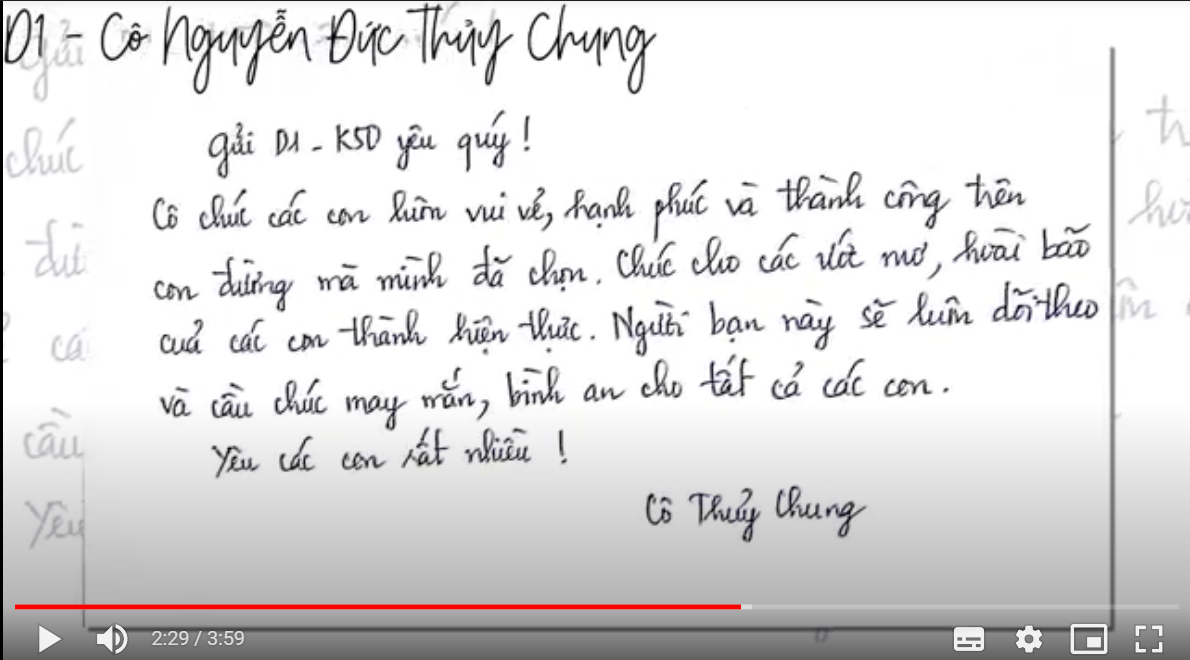 D1 - Cô Nguyễn Đức Thủy Chung
gửi D1 - K50 yêu quý!
Cô chúc các con luôn vui vẻ, hạnh phúc và thành công trên
con đường mà mình đã chọn. Chúc cho các ước mơ, hoài bão
của các con thành hiện thực. Người bạn này sẽ luôn dõi theo
và cầu chúc may mắn, bình an cho tất cả các con.
Yêu các con rất nhiều!
Cô Thủy Chung
2:29 / 3:59